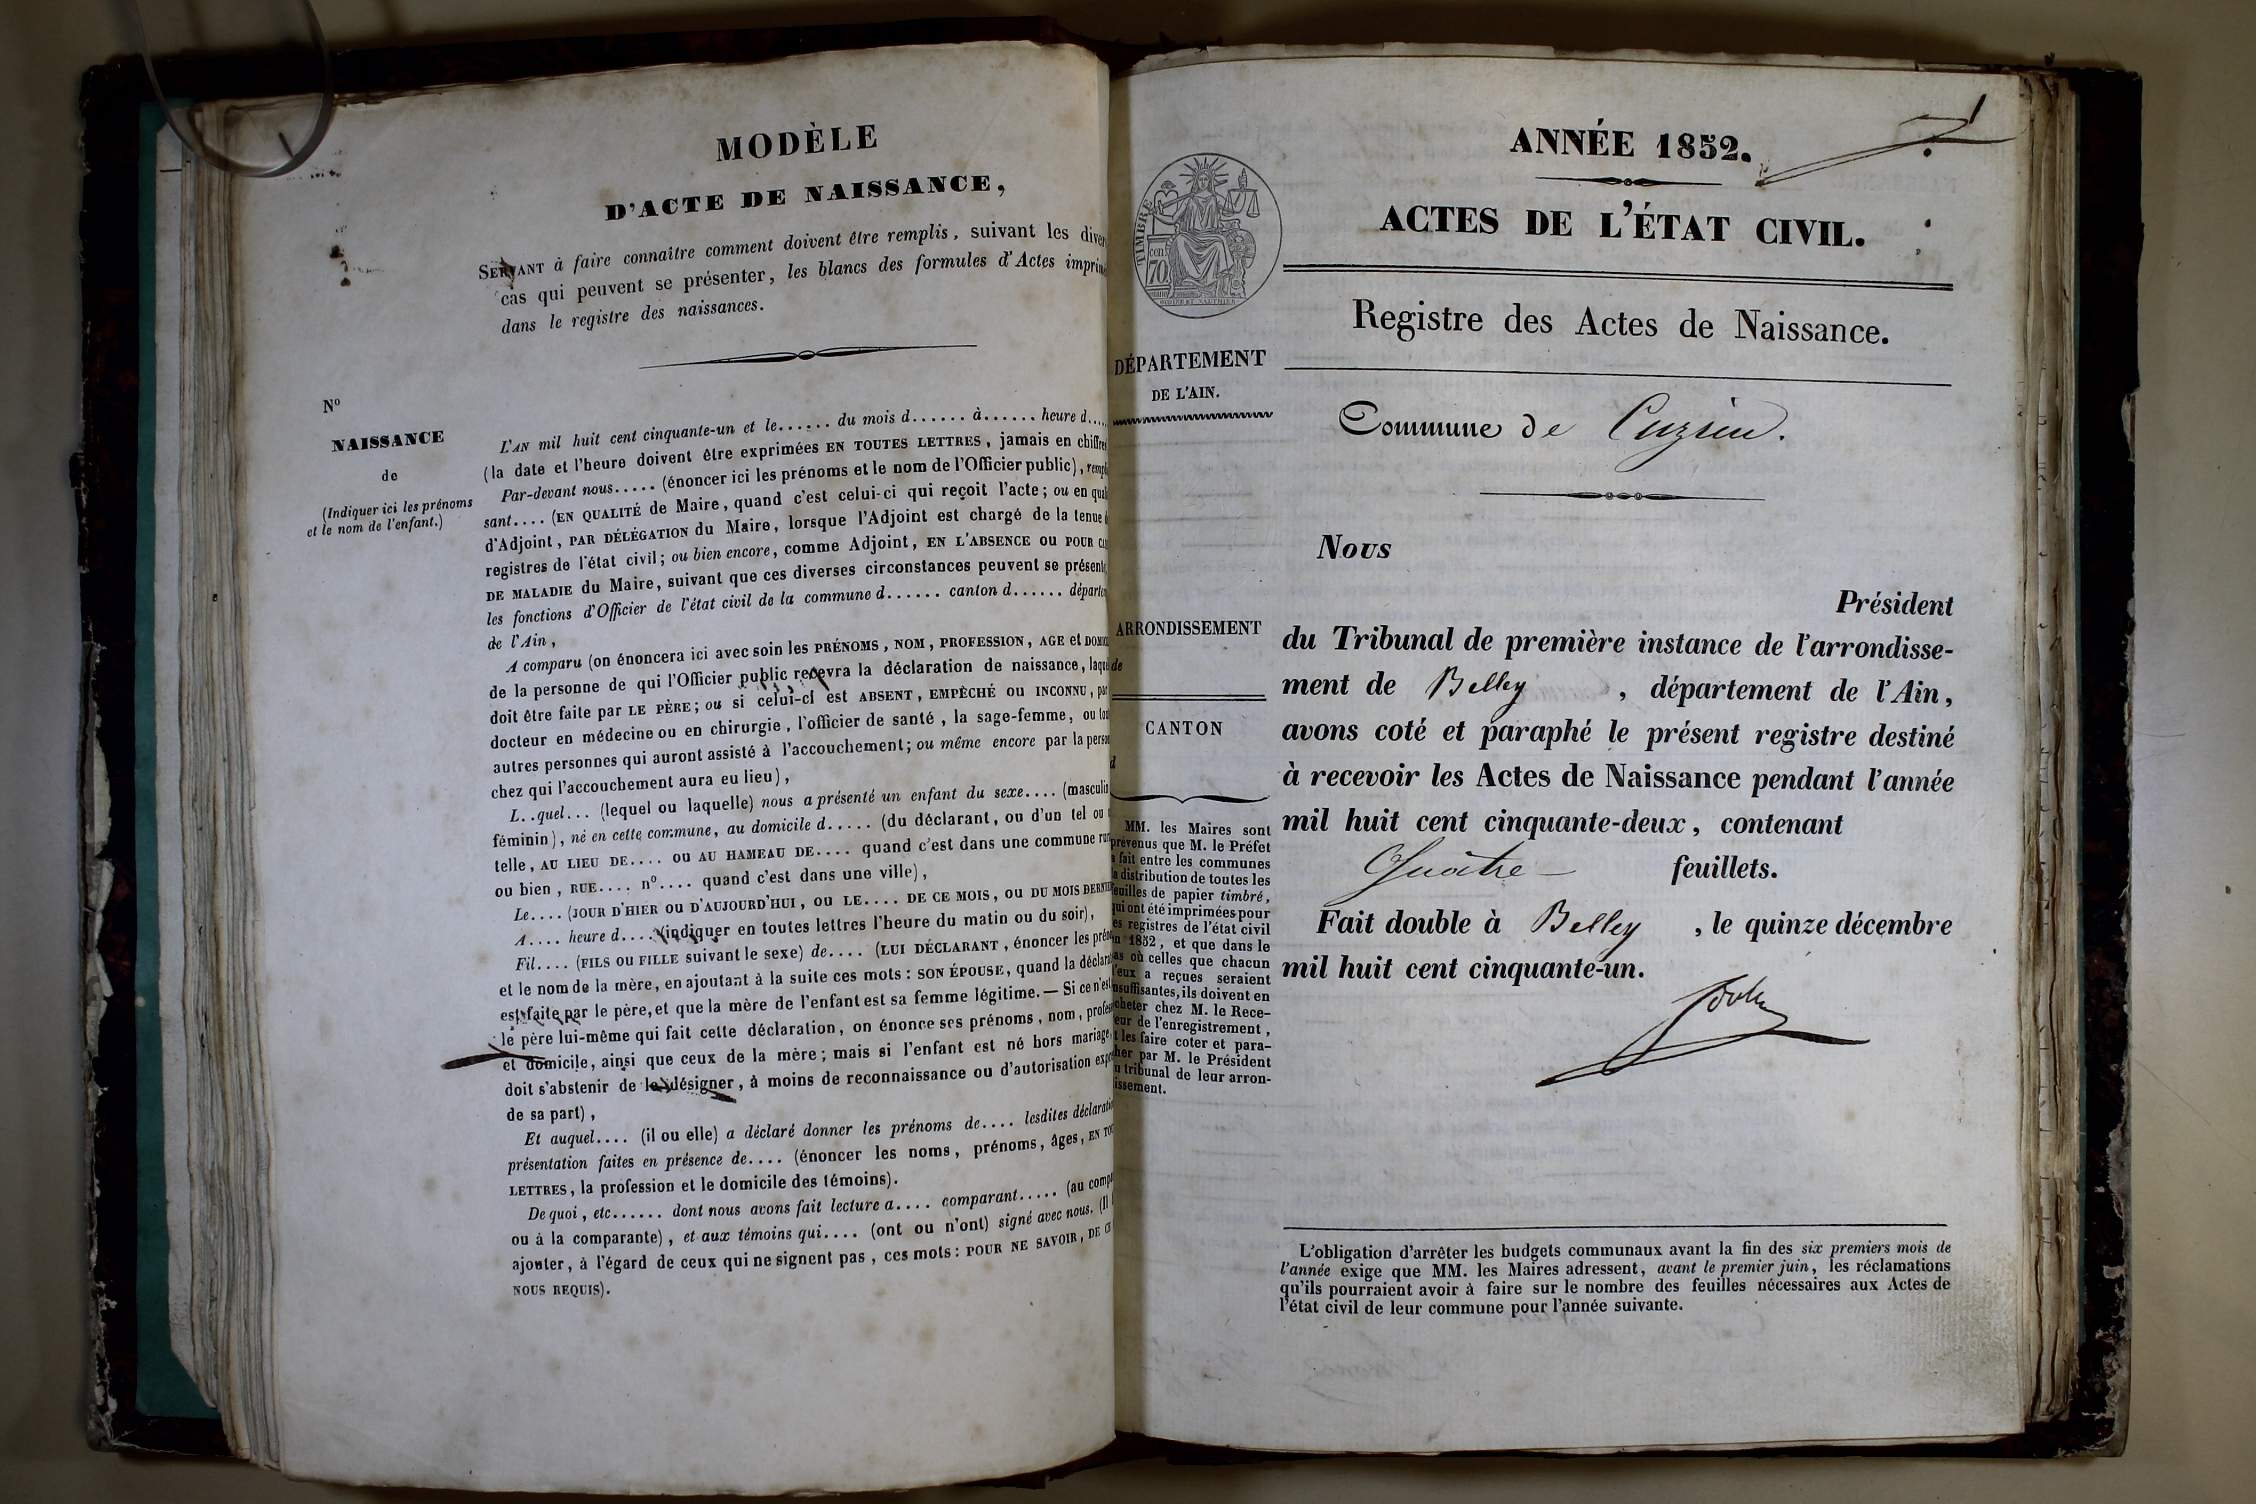 MODÈLE
D'ACTE DE NAISSANCE,
SERVANT à faire connaître comment doivent être remplis, suivant les diver
cas qui peuvent se présenter, les blancs des formules d'Actes imprim
dans le registre des naissances.
No
NAISSANCE
de
(Indiquer ici les prénoms
et le nom de l'enfant.)
L'AN mil huit cent cinquante-un et le...... du mois d...... à...... heure d.....
(la date et l'heure doivent être exprimées EN TOUTES LETTRES, jamais en chiffres
Par-devant nous..... (énoncer ici les prénoms et le nom de l'Officier public), rempli
sant.... (EN QUALITÉ de Maire, quand c'est celui-ci qui reçoit l'acte; ou en quali
d'Adjoint, PAR DÉLÉGATION du Maire, lorsque l'Adjoint est chargé de la tenue d
registres de l'état civil; ou bien encore, comme Adjoint, EN L'ABSENCE OU POUR CAU
DE MALADIE du Maire, suivant que ces diverses circonstances peuvent se présente
les fonctions d'Officier de l'état civil de la commune d...... canton d...... départem
de l'Ain,
A comparu (on énoncera ici avec soin les PRÉNOMS, NOM, PROFESSION, AGE et DOMICI
de la personne de qui l'Officier public recevra la déclaration de naissance, laque
doit être faite par LE PÈRE; ou si celui-ci est ABSENT, EMPÊCHÉ OU INCONNU, par
docteur en médecine ou en chirurgie, l'officier de santé, la sage-femme, ou tou
autres personnes qui auront assisté à l'accouchement; ou même encore par la person
chez qui l'accouchement aura eu lieu),
L..quel... (lequel ou laquelle) nous a présenté un enfant du sexe.... (masculin
féminin), né en cette commune, au domicile d..... (du déclarant, ou d'un tel ou
telle, AU LIEU DE.... OU AU HAMEAU DE.... quand c'est dans une commune rur
ou bien, RUE.... no.... quand c'est dans une ville),
Le.... (JOUR D'HIER OU D'AUJOURD'HUI, OU LE.... DE CE MOIS, OU DU MOIS DERNIER
A.... heure d.... (indiquer en toutes lettres l'heure du matin ou du soir),
Fil.... (FILS OU FILLE suivant le sexe) de.... (LUI DÉCLARANT, énoncer les préno
et le nom de la mère, en ajoutant à la suite ces mots: SON ÉPOUSE, quand la déclara
est faite par le père, et que la mère de l'enfant est sa femme légitime.— Si ce n'est
le père lui-même qui fait cette déclaration, on énonce ses prénoms, nom, profess
et domicile, ainsi que ceux de la mère; mais si l'enfant est né hors mariage,
doit s'abstenir de le désigner, à moins de reconnaissance ou d'autorisation expr
de sa part),
Et auquel.... (il ou elle) a déclaré donner les prénoms de.... lesdites déclaratio
présentation faites en présence de.... (énoncer les noms, prénoms, âges, EN TOU
LETTRES, la profession et le domicile des témoins).
De quoi, etc...... dont nous avons fait lecture a.... comparant..... (au compa
ou à la comparante), et aux témoins qui.... (ont ou n'ont) signé avec nous. (Il
ajouter, à l'égard de ceux qui ne signent pas, ces mots: POUR NE SAVOIR, DE CE
NOUS REQUIS).
1
TIMBRE
cen
70
DÉPARTEMENT
DE L'AIN.
ARRONDISSEMENT
de
CANTON
d
MM. les Maires sont
prévenus que M. le Préfet
a fait entre les communes
la distribution de toutes les
feuilles de papier timbré,
qui ont été imprimées pour
es registres de l'état civil
n 1852, et que dans le
as où celles que chacun
l'eux a reçues seraient
nsuffisantes, ils doivent en
cheter chez M. le Rece-
eur de l'enregistrement,
t les faire coter et para-
her par M. le Président
u tribunal de leur arron-
issement.
ANNÉE 1852.
ACTES DE L'ÉTAT CIVIL.
Registre des Actes de Naissance.
Commune de Cuzieu.
Nous
Président
du Tribunal de première instance de l'arrondisse-
ment de Belley, département de l'Ain,
avons coté et paraphé le présent registre destiné
à recevoir les Actes de Naissance pendant l'année
mil huit cent cinquante-deux, contenant
Quatre feuillets.
Fait double à Belley, le quinze décembre
mil huit cent cinquante-un.
L'obligation d'arrêter les budgets communaux avant la fin des six premiers mois de
l'année exige que MM. les Maires adressent, avant le premier juin, les réclamations
qu'ils pourraient avoir à faire sur le nombre des feuilles nécessaires aux Actes de
l'état civil de leur commune pour l'année suivante.